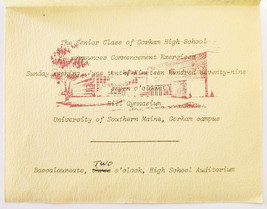 The Senior Class of Gorham High School
announces Commencement Exercises
Sunday evening, June tenth nineteen hundred seventy-nine
seven o'clock
Hill Gymnasium
University of Southern Maine, Gorham campus
TWO
Baccalaureate, three o'clock, High School Auditorium